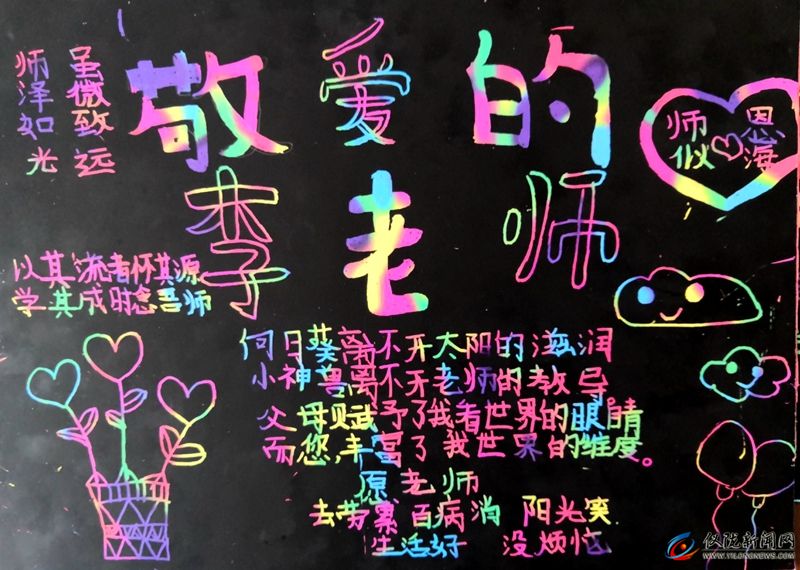 师泽如光
虽微致远
敬爱的
李老师
师恩
似海
以其流者怀其源
学其成时念吾师
向日葵离不开太阳的滋润
小神兽离不开老师的教导。
父母赋予了我看世界的眼睛
而您,丰富了我世界的维度。
原老师
去劳累 百病消 阳光笑
生活好 没烦恼
仪陇新闻网
WWW.YILONGNEWS.COM